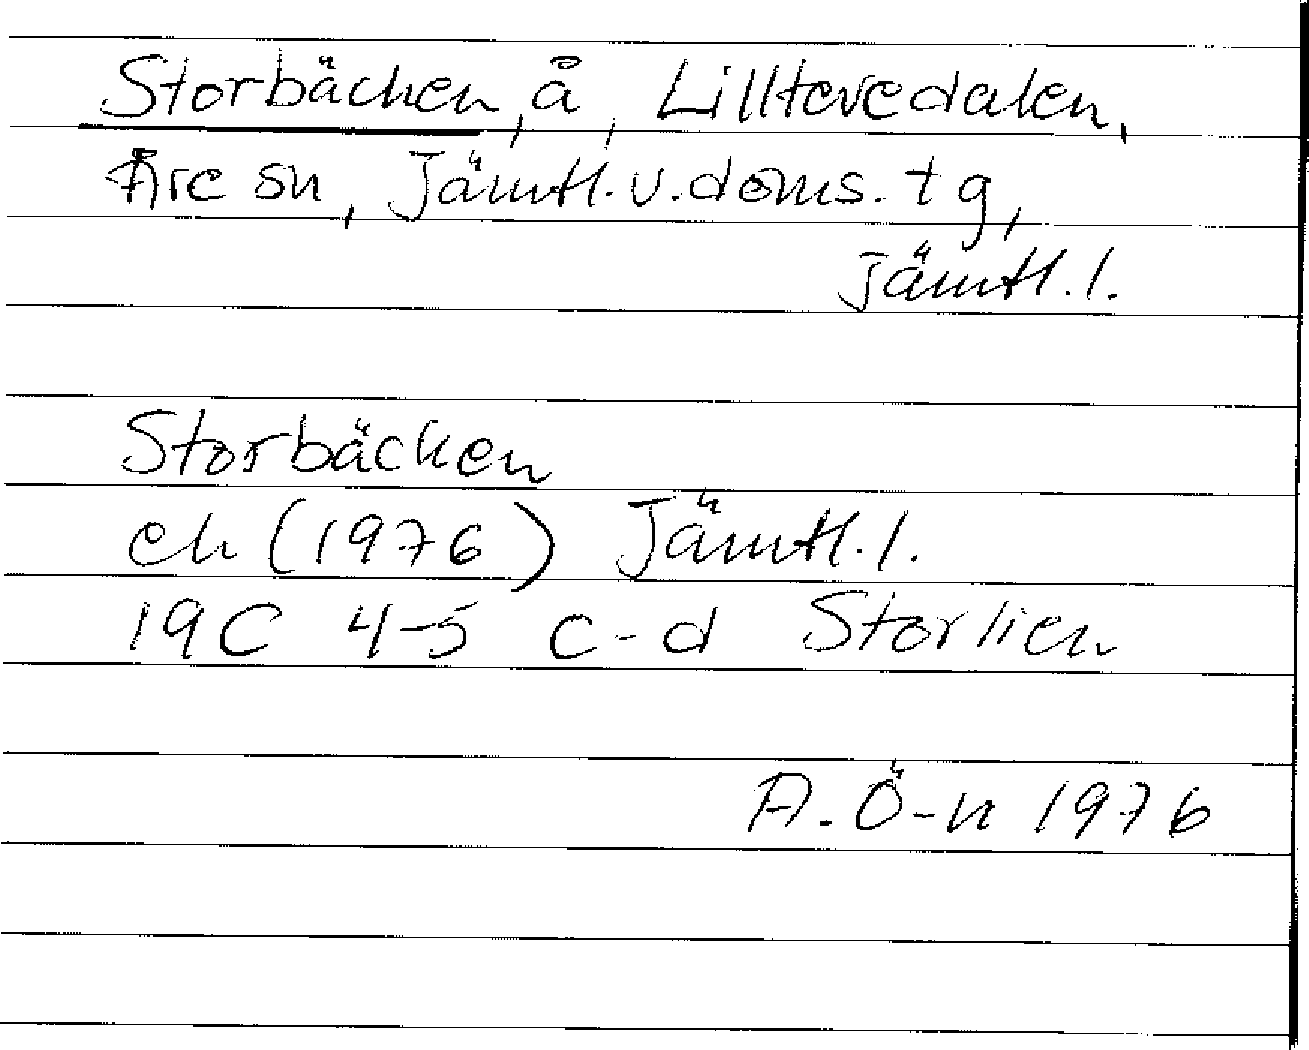 Storbäcken, å, Lilltevedalen,
Åre sn, Jämtl. v. doms. tg,
Jämtl. l.
Storbäcken
ek (1976) Jämtl. l.
19C 4-5 c-d Storlien
A. Ö-n 1976